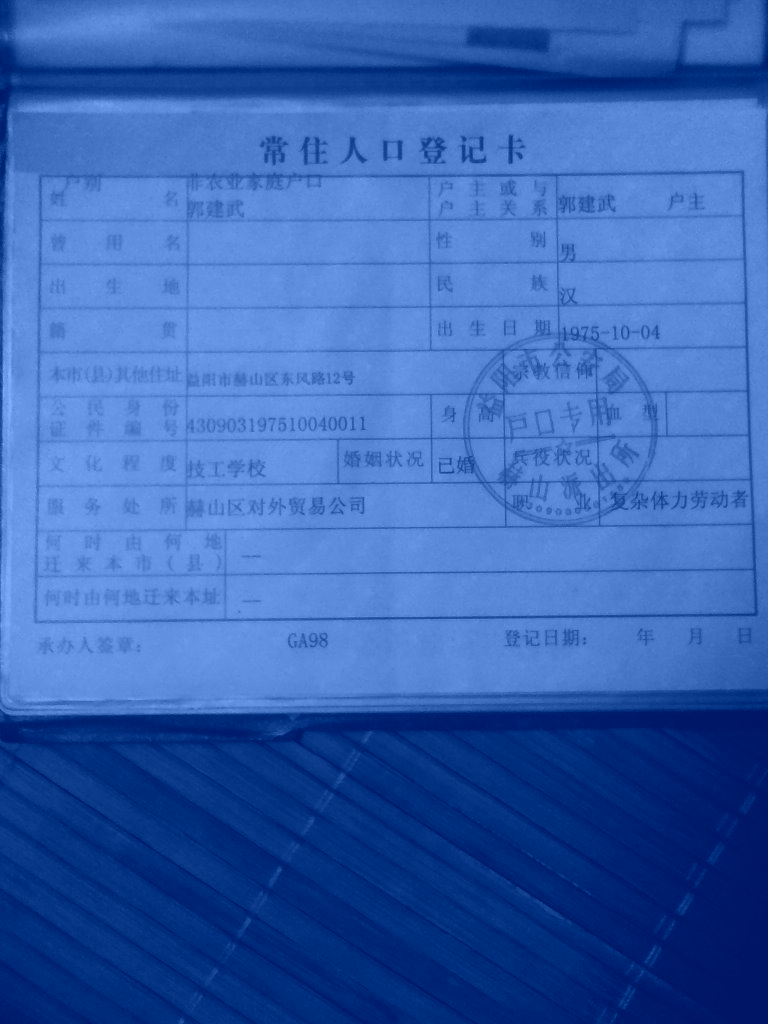 常住人口登记卡
户别 非农业家庭户口
姓名 郭建武 户主或与户主关系 郭建武 户主
曾用名 性别 男
出生地 民族 汉
籍贯 出生日期 1975-10-04
本市(县)其他住址 益阳市赫山区东风路12号 宗教信仰
公民身份证件编号 430903197510040011 身高 血型
文化程度 技工学校 婚姻状况 已婚 兵役状况
服务处所 赫山区对外贸易公司 职业 复杂体力劳动者
何时由何地迁来本市(县) —
何时由何地迁来本址 —
承办人签章: GA98 登记日期: 年 月 日
益阳市公安局
户口专用
赫山派出所